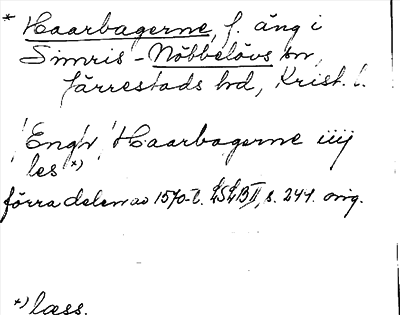 * Haarbagerne, f. äng i
Simris-Nöbbelövs sn,
Järrestads hd, Krist. l.
'Engh' 'Haarbagerne iiij
les *)
förra delen av 1570-t. LSLB II, s. 244. orig.
*) læss.